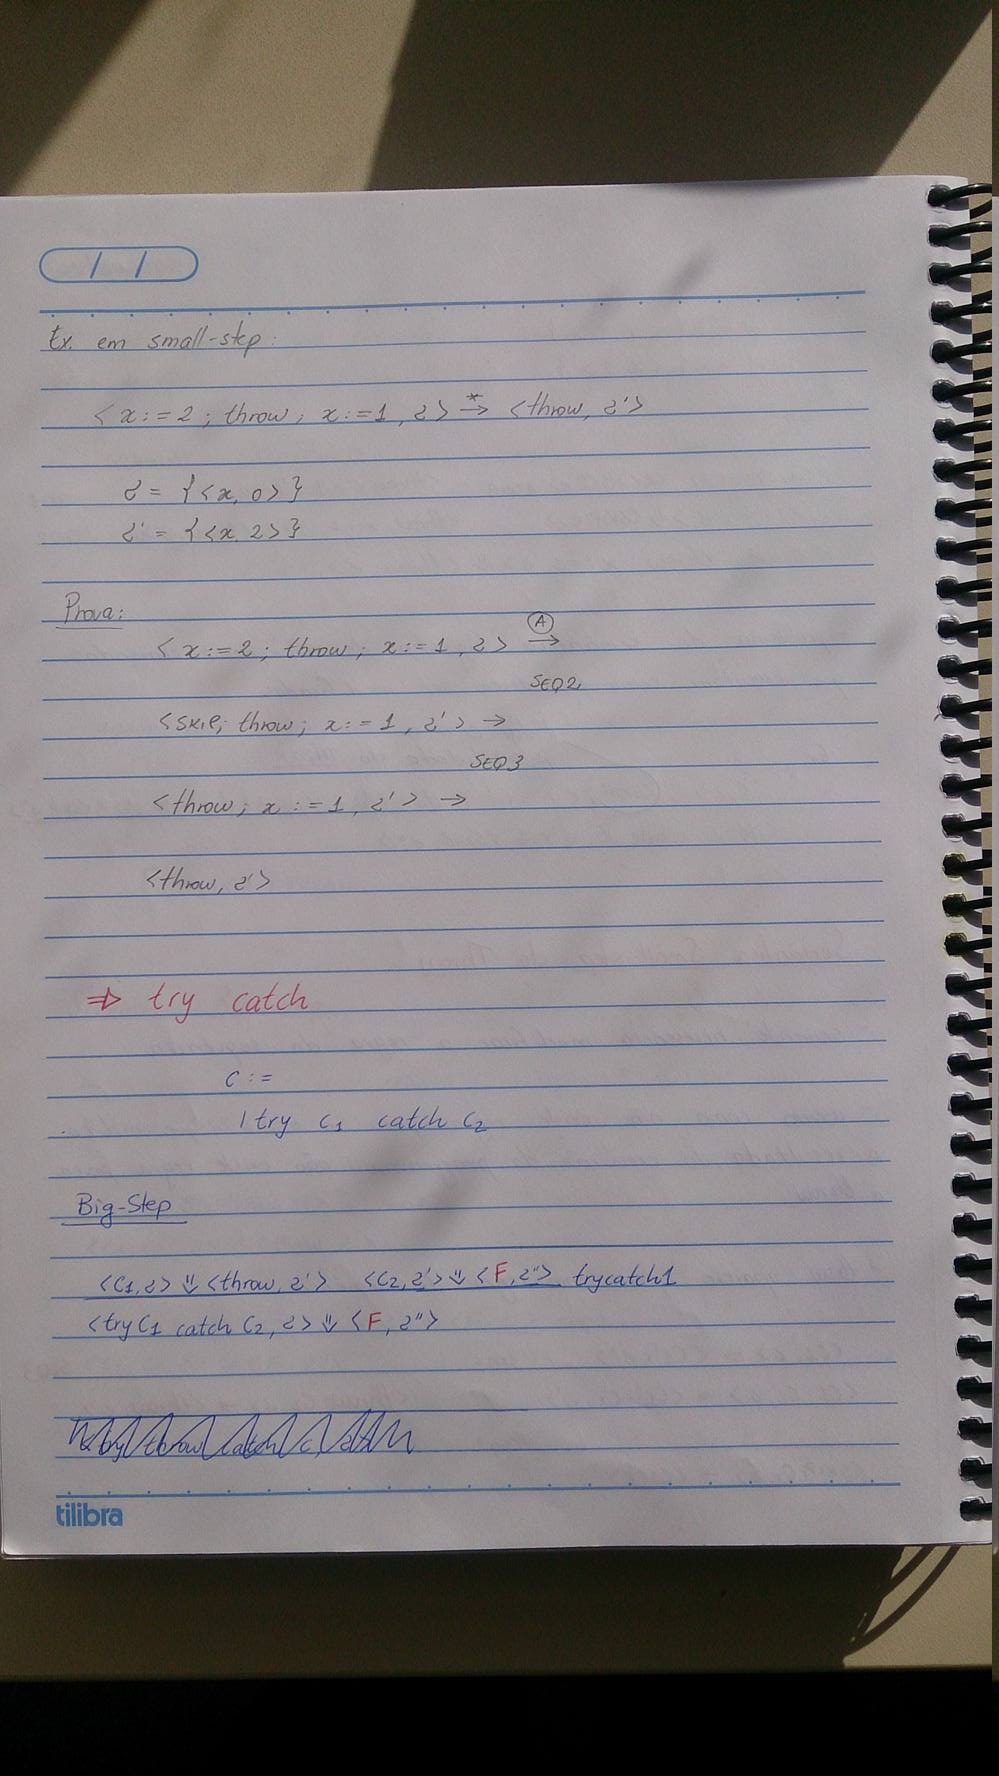 Ex. em small-step:
<x:=2; throw; x:=1, σ> →* <throw, σ'>
σ = {<x, 0>}
σ' = {<x, 2>}
Prova:
A
<x:=2; throw; x:=1, σ> →
SEQ2
<skip; throw; x:=1, σ'> →
SEQ3
<throw; x:=1, σ'> →
<throw, σ'>
⇒ try catch
C :=
| try C₁ catch C₂
Big-Step
<C₁, σ> ⇓ <throw, σ'> <C₂, σ'> ⇓ <F, σ''> trycatch1
<try C₁ catch C₂, σ> ⇓ <F, σ''>
tilibra